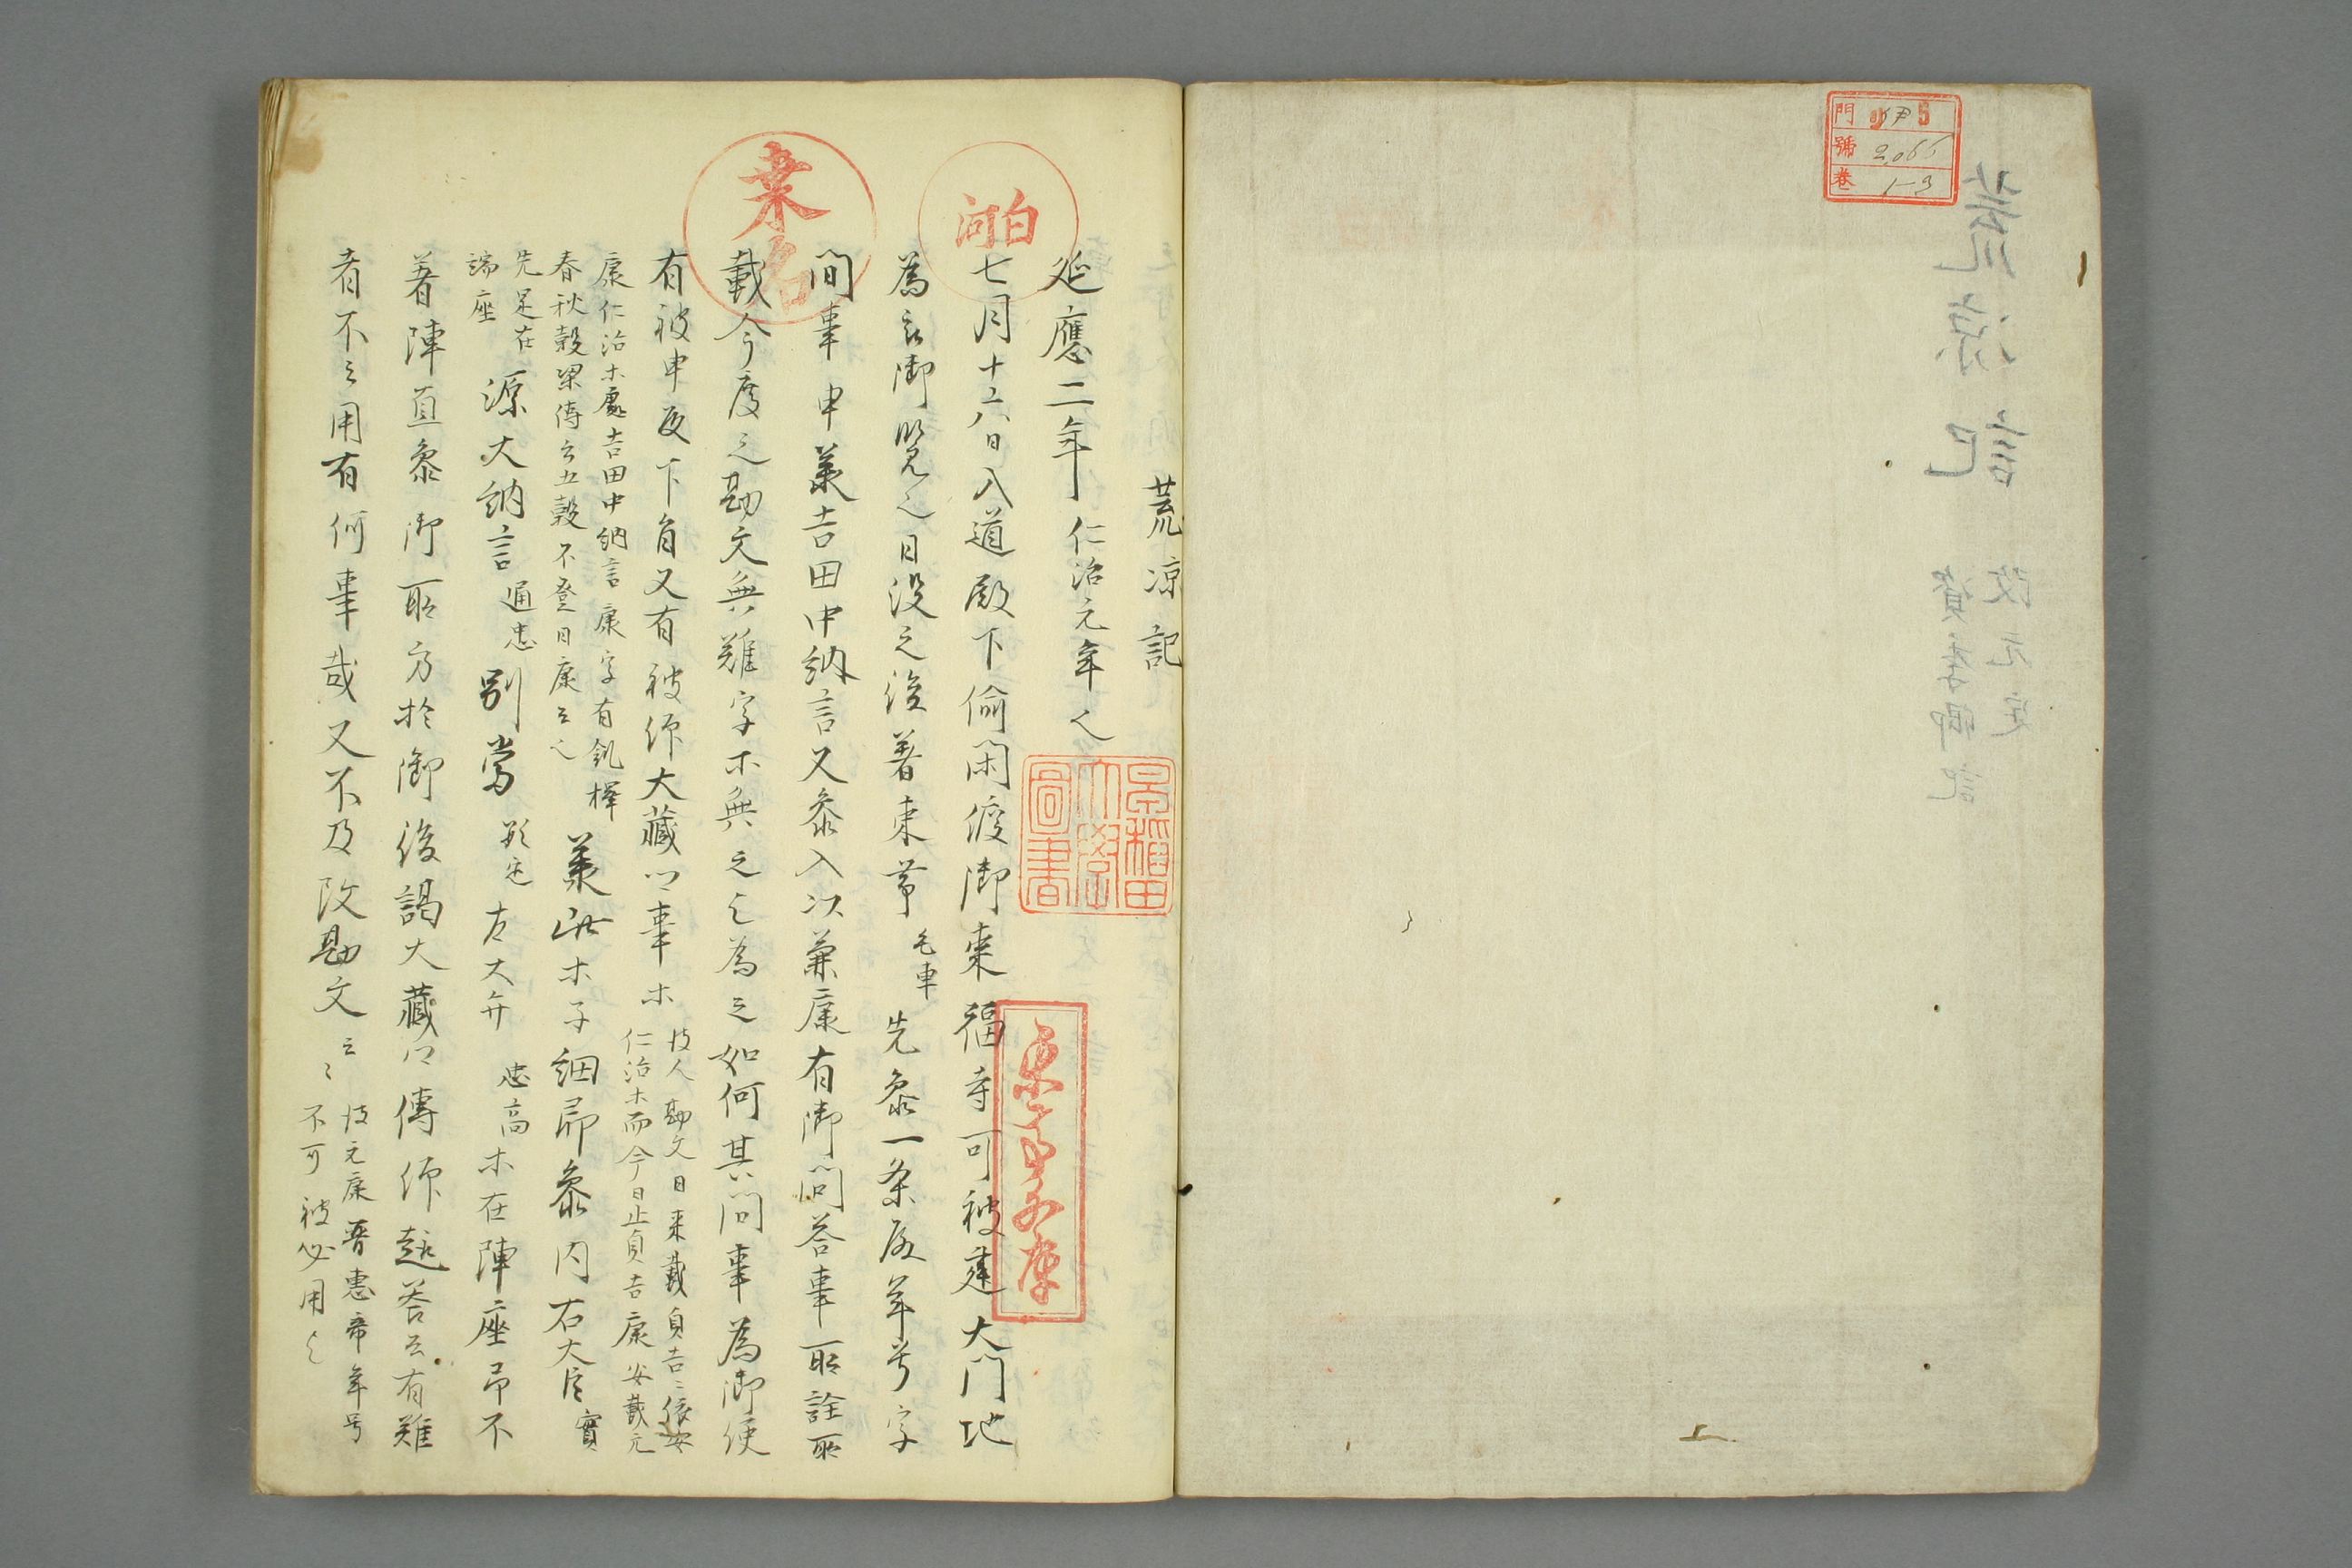 門 伊 5
號 2066
卷 1-3
荒涼記
改元定
資季卿記
荒凉記
延應二年 仁治元年
七月十六日入道殿下偷閑渡御東福寺可被建大門地
為御覽之日没之後著束帯 毛車 先参一条殿年号字
間事申兼吉田中納言又参入次兼康有御問答事所詮所
載今度之勘文無難字木無之云為之如何其問事為御使
有被申殿下旨又有被仰大藏卿事木 彼人勘文日来載貞吉
仁治木而今日止貞吉康安載元
康仁治木處吉田中納言康字有釓禅
春秋穀梁傳云五穀不登曰康云々
兼此木子細即参内右大臣 實
先是在
端座
源大納言 通忠 別當 定 左大弁 忠高 木在陣座予不
著陣直参御所方於御後謁大藏卿傳仰趣答云有難
者不之用有何事哉又不及改勘文云々 彼元康晋惠帝年号
不可被必用之
白河
桒名
早稲田大學圖書